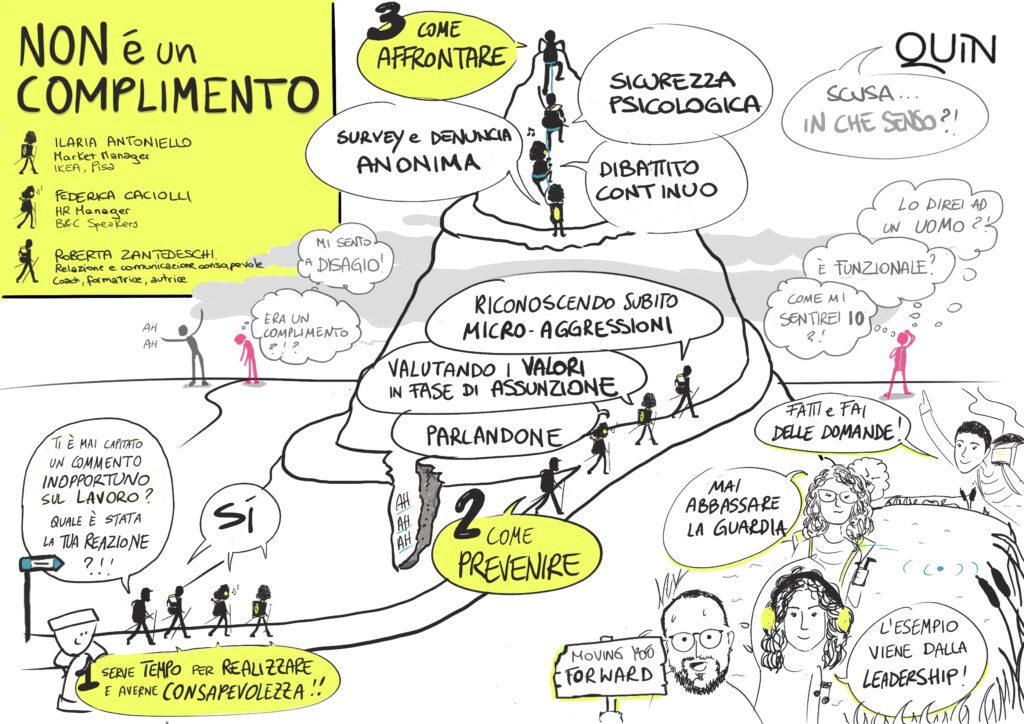 NON é un
COMPLIMENTO
ILARIA ANTONIELLO
Market Manager
IKEA, Pisa
FEDERICA CACIOLLI
HR Manager
B&C Speakers
ROBERTA ZANTEDESCHI
Relazione e comunicazione consapevole
Coach, formatrice, autrice
3 COME
AFFRONTARE
SICUREZZA
PSICOLOGICA
SURVEY e DENUNCIA
ANONIMA
DIBATTITO
CONTINUO
QUiN
SCUSA...
IN CHE SENSO?!
LO DIREI AD
UN UOMO?!
È FUNZIONALE?
COME MI
SENTIREI IO
?!
MI SENTO
A DISAGIO!
ERA UN
COMPLIMENTO
?!?
AH
AH
RICONOSCENDO SUBITO
MICRO-AGGRESSIONI
VALUTANDO I VALORI
IN FASE DI ASSUNZIONE
PARLANDONE
AH
AH
AH
2 COME
PREVENIRE
TI È MAI CAPITATO
UN COMMENTO
INOPPORTUNO
SUL LAVORO?
QUALE È STATA
LA TUA REAZIONE
?!!
SÍ
1 SERVE TEMPO PER REALIZZARE
E AVERNE CONSAPEVOLEZZA!!
FATTI e FAI
DELLE DOMANDE!
MAI
ABBASSARE
LA GUARDIA
L'ESEMPIO
VIENE DALLA
LEADERSHIP!
MOVING
FORWARD